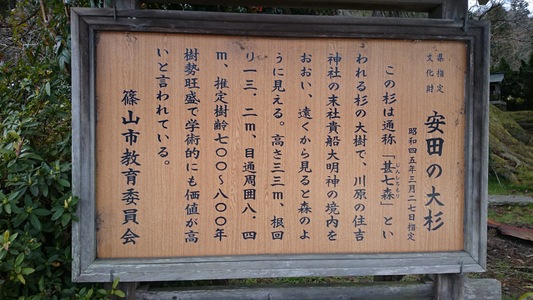 県指定
文化財
安田の大杉
昭和四五年三月二七日指定
この杉は通称「甚七森」とい
じんしちもり
われる杉の大樹で、川原の住吉
神社の末社貴船大明神の境内を
おおい、遠くから見ると森のよ
うに見える。高さ三三m、根回
り一三、二m、目通周囲八、四
m、推定樹齢七〇〇〜八〇〇年
樹勢旺盛で学術的にも価値が高
いと言われている。
篠山市教育委員会